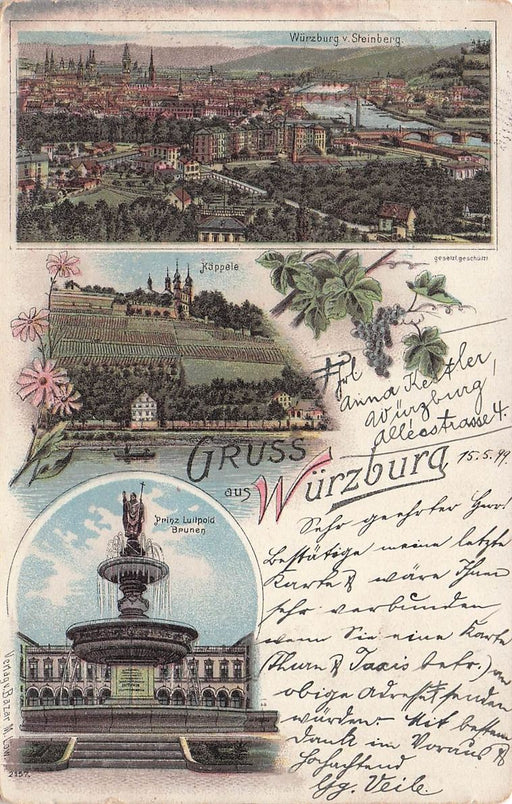 Würzburg v. Steinberg.
gesetzl geschützt
Käppele
Frl
Anna Kessler,
Würzburg,
Alléestrasse 4.
Gruss
aus Würzburg
15.5.99
Prinz Luitpold
Brunen
Sehr geehrter Herr!
Bestätige meine letzte
Karte & wäre Ihnen
sehr verbunden,
wenn Sie eine Karte
(Thurn & Taxis betr.) an
obige Adresse senden
würden. Mit bestem
Dank im Voraus &
Hochachtend
Gg. Veile.
Verlag: Bazar M.
2157.